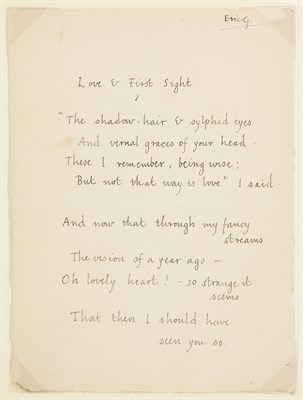 Love & First Sight.
"The shadow-hair & sylphid eyes
And vernal graces of your head -
These I remember, being wise;
But not that way is love" I said.
And now that through my fancy
streams
The vision of a year ago —
Oh lovely heart! - so strange it
seems
That then I should have
seen you so.